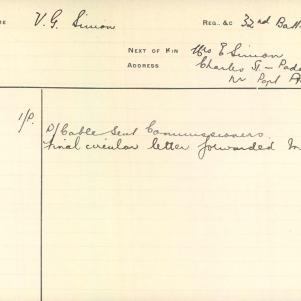 ME V. G. Simon REG. &C 32nd Batt
NEXT OF KIN Mrs E Simon
ADDRESS Charles St - Pado
Nr Port A
1/P. P/Cable Sent Commissioners
Final circular letter forwarded